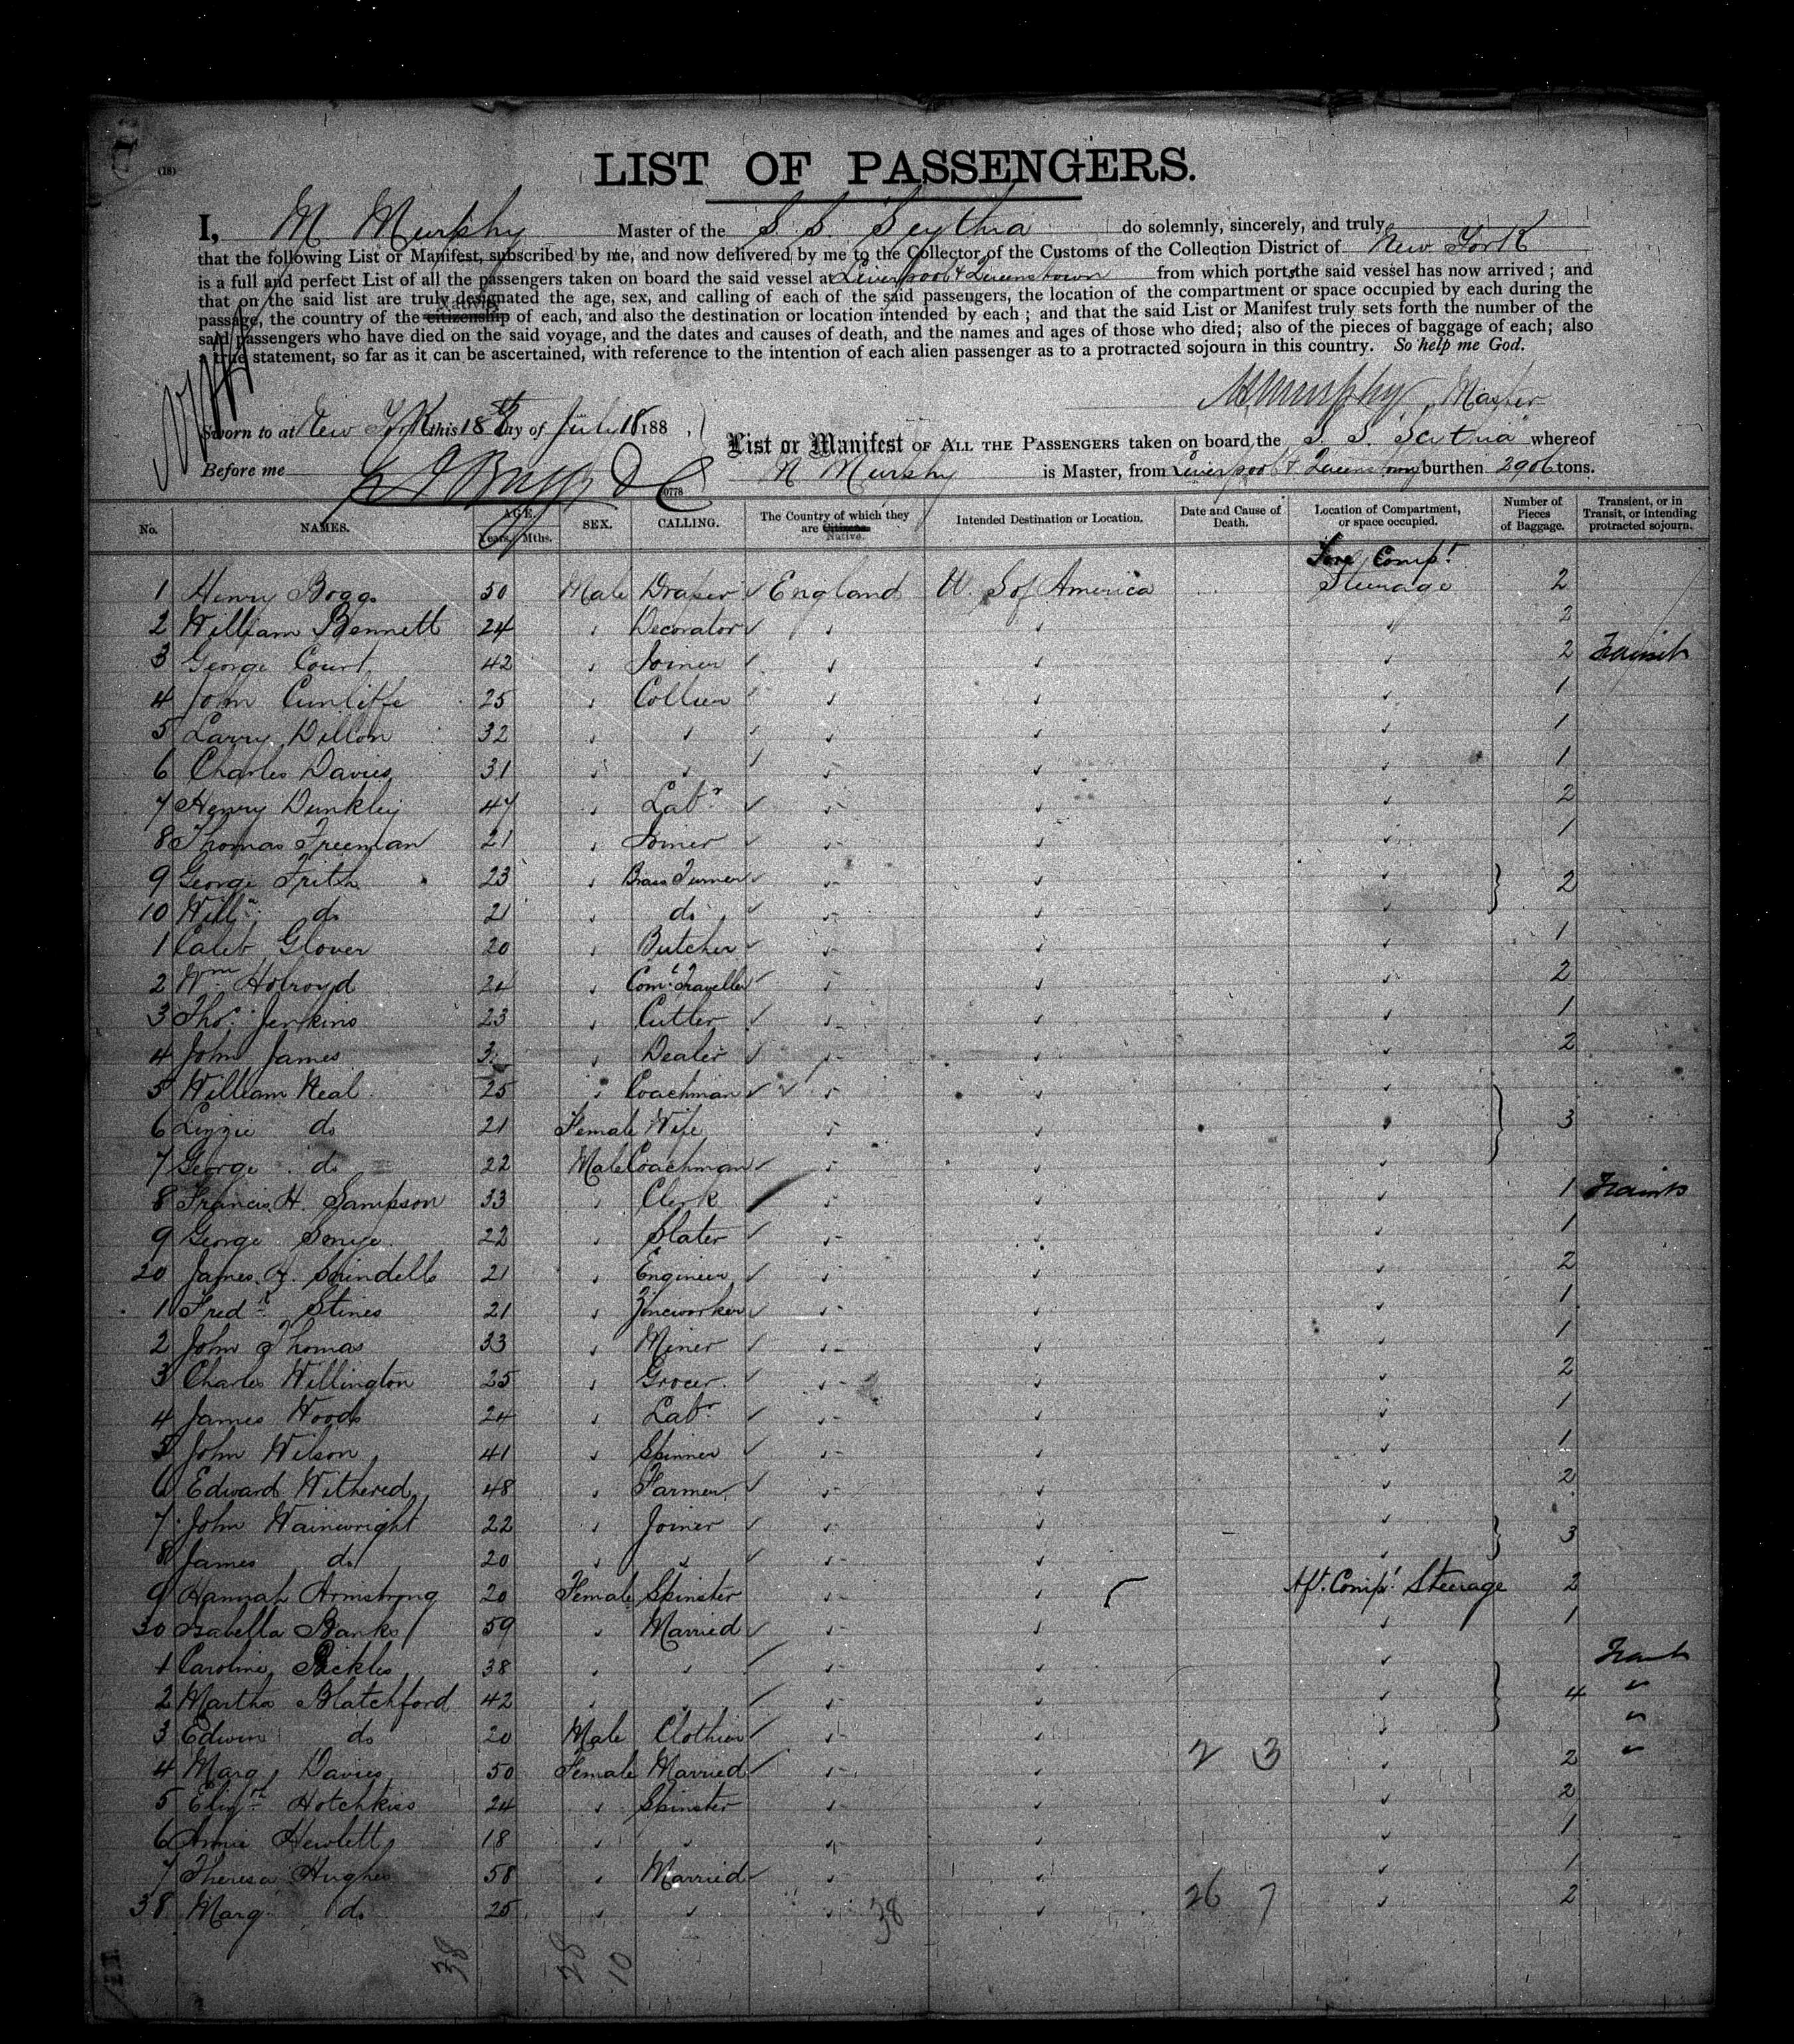 (18)
LIST OF PASSENGERS.
I, M Murphy Master of the S. S. Scythia do solemnly, sincerely, and truly
that the following List or Manifest, subscribed by me, and now delivered by me to the Collector of the Customs of the Collection District of New York
is a full and perfect List of all the passengers taken on board the said vessel at Liverpool & Queenstown from which ports the said vessel has now arrived; and
that on the said list are truly designated the age, sex, and calling of each of the said passengers, the location of the compartment or space occupied by each during the
passage, the country of the citizenship of each, and also the destination or location intended by each; and that the said List or Manifest truly sets forth the number of the
said passengers who have died on the said voyage, and the dates and causes of death, and the names and ages of those who died; also of the pieces of baggage of each; also
a true statement, so far as it can be ascertained, with reference to the intention of each alien passenger as to a protracted sojourn in this country. So help me God.
M Murphy, Master
Sworn to at New York this 18th day of July 1888
List or Manifest OF ALL THE PASSENGERS taken on board the S. S. Scythia whereof
Before me
M Murphy is Master, from Liverpool & Queenstown burthen 2906 tons.
No. NAMES. AGE. Years. Mths. SEX. CALLING. The Country of which they are Citizens. Native. Intended Destination or Location. Date and Cause of Death. Location of Compartment, or space occupied. Number of Pieces of Baggage. Transient, or in Transit, or intending protracted sojourn.
Fore Compt
1 Henry Boggs 50 Male Draper England U. S of America Steerage 2
2 William Bennett 24 Decorator 2
3 George Court 42 Joiner 2 Transit
4 John Cunliffe 25 Collier 1
5 Larry Dillon 32 1
6 Charles Davies 31 1
7 Henry Dunkley 47 Labr 2
8 Thomas Freeman 21 Joiner 1
9 George Frith 23 Brass Turner 2
10 Willm do 21 do
1 Caleb Glover 20 Butcher 1
2 Wm Holroyd 24 Coml Traveller 2
3 Thos Jenkins 23 Cutler 1
4 John James Dealer 2
5 William Neal 25 Coachman
6 Lizzie do 21 Female Wife 3
7 George do 22 Male Coachman
8 Francis H. Sampson 33 Clerk 1 Transit
9 George 22 Slater 1
20 James Spindells 21 Engineer 2
1 Fredk Stines 21 Zincworker 1
2 John Thomas 33 Miner 1
3 Charles Willington 25 Grocer 2
4 James Woods 24 Labr 1
5 John Wilson 41 Spinner 1
6 Edward Withered 48 Farmer 2
7 John Wainwright 22 Joiner 3
8 James do 20
9 Hannah Armstrong 20 Female Spinster Aft. Compt Steerage 2
30 Isabella Banks 59 Married 1
1 Caroline Bickles 38 Transit
2 Martha Blatchford 42 4 "
3 Edwin do 20 Male Clothier "
4 Marg Davies 50 Female Married 2 3 2 "
5 Elizth Hotchkiss 24 Spinster 2
6 Annie Hewlett 18 1
7 Theresa Hughes 58 Married 1
38 Marg do 25 38 26 7 2
38 28 10